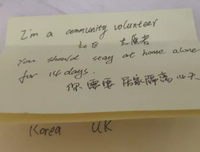 I'm a community volunteer
志愿者
You should stay at home alone
for 14 days.
你 需要 居家隔离 14天.
Korea UK